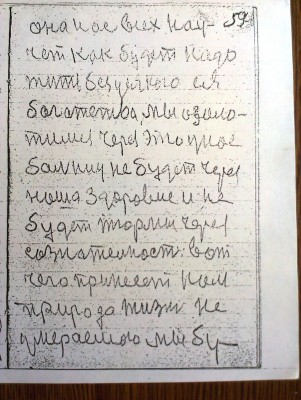 59
она нас всех науч-
чет как будет надо
жить безусякого ея
богатства мы озоло-
тимся через это у нас
больниц не будет через
наша здоровие и не
будет тюрмы через
сознательност вот
чего принесет нам
природа жизн не
умераемою мы бу-